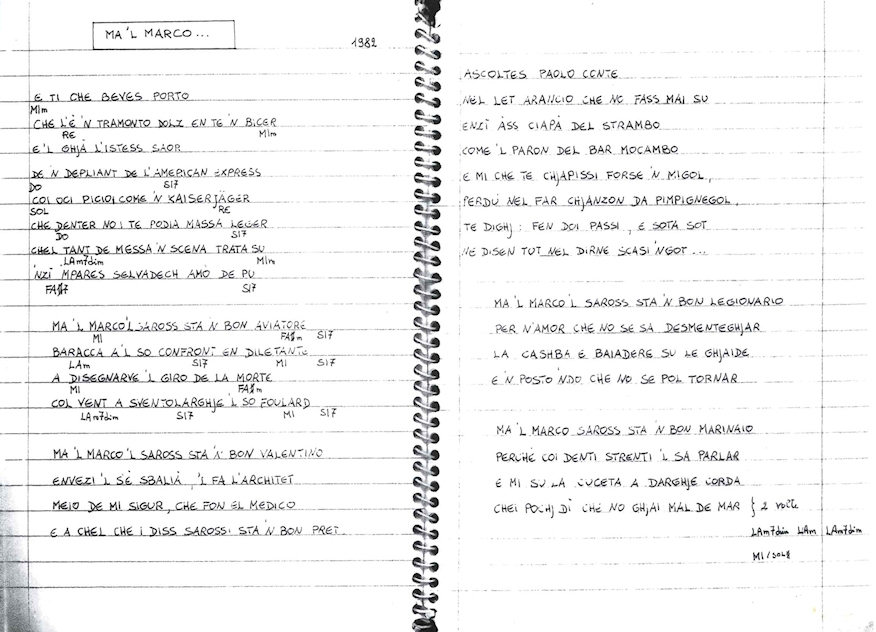 MA 'L MARCO...
1982
E TI CHE BEVES PORTO
MIm
CHE L'È 'N TRAMONTO DOLZ EN TE 'N BICER
RE MIm
E 'L GHJÀ L'ISTESS SAOR
DE 'N DEPLIANT DE L'AMERICAN EXPRESS
DO SI7
COI OCI PICIOI COME 'N KAISERJÄGER
SOL RE
CHE DENTER NO I TE PODIA MASSA LEGER
DO SI7
CHEL TANT DE MESSA 'N SCENA TRATA SU
LAm7dim MIm
'NZÌ 'MPARES SELVADECH AMÒ DE PU
FA#7 SI7
MA 'L MARCO 'L SAROSS STA 'N BON AVIATORE
MI FA#m SI7
BARACCA A 'L SO CONFRONT EN DILETANTE
LAm SI7 MI SI7
A DISEGNARVE 'L GIRO DE LA MORTE
MI FA#m
COL VENT A SVENTOLARGHJE 'L SO FOULARD
LAm7dim SI7 MI SI7
MA 'L MARCO 'L SAROSS STA 'N BON VALENTINO
ENVEZI 'L SÈ SBALIÀ, 'L FA L'ARCHITET
MEIO DE MI SIGUR, CHE FON EL MEDICO
E A CHEL CHE I DISS SAROSSI STA 'N BON PRET.
ASCOLTES PAOLO CONTE
NEL LET ARANCIO CHE NO FASS MAI SU
ENZÌ ASS CIAPÀ DEL STRAMBO
COME 'L PARON DEL BAR MOCAMBO
E MI CHE TE CHJAPISSI FORSE 'N MIGOL,
PERDÙ NEL FAR CHJANZON DA PIMPIGNEGOL,
TE DIGHJ: FEN DOI PASSI, E SOTA SOT
NE DISEN TUT NEL DIRNE SCASI 'NGOT...
MA 'L MARCO 'L SAROSS STA 'N BON LEGIONARIO
PER 'N'AMOR CHE NO SE SA DESMENTEGHJAR
LA CASHBA E BAIADERE SU LE GHJAIDE
E 'N POSTO 'NDO CHE NO SE POL TORNAR
MA 'L MARCO SAROSS STA 'N BON MARINAIO
PERCHÉ COI DENTI STRENTI 'L SA PARLAR
E MI SU LA CUCETA A DARGHJE CORDA
CHEI POCHJ DÌ CHE NO GHJAI MAL DE MAR } 2 volte
LAm7dim LAm LAm7dim
MI/SOL#